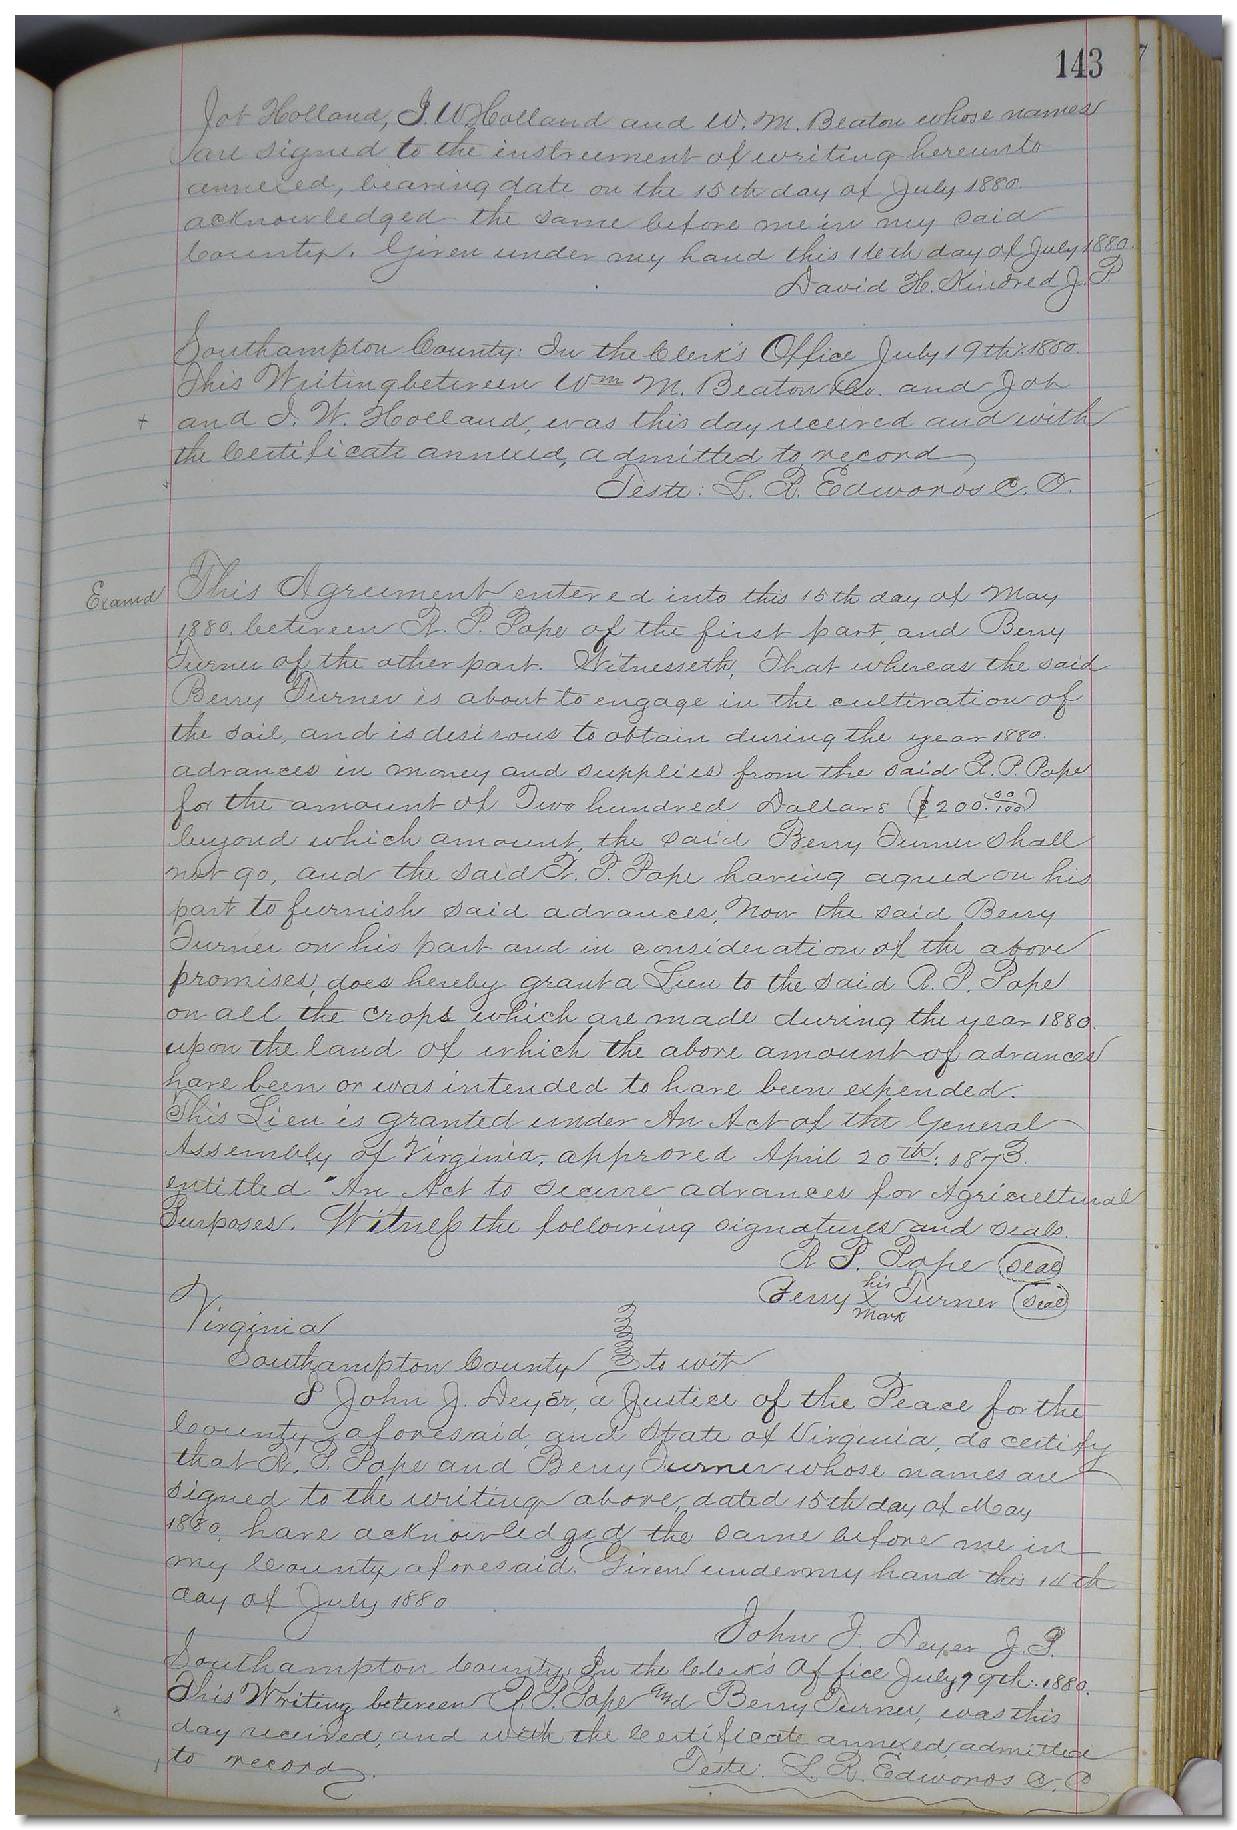 143
Job Holland, J. W Holland and W. M. Beaton whose names
are signed to the instrument of writing hereunto
annexed, bearing date on the 15th day of July 1880.
acknowledged the same before me in my said
County. Given under my hand this 16th day of July 1880.
David H. Kindred J. P.
Southampton County: In the Clerk's Office July 19th: 1880.
This Writing between Wm M. Beaton & Co. and Job
and J. W. Holland, was this day received and with
the Certificate annexed, admitted to record
Teste: L. R. Edwards C. C.
Examd
This Agreement entered into this 15th day of May
1880. between R. P. Pope of the first part and Berry
Turner of the other part. Witnesseth, That whereas the said
Berry Turner is about to engage in the cultivation of
the soil, and is desirous to obtain during the year 1880.
advances in money and supplies from the said R. P. Pope
for the amount of Two hundred Dollars ($200.00/100)
beyond which amount, the said Berry Turner shall
not go, and the said R. P. Pope having agreed on his
part to furnish said advances, Now the said Berry
Turner on his part and in consideration of the above
promises, does hereby grant a Lien to the said R. P. Pope
on all the crops which are made during the year 1880.
upon the land of which the above amount of advances
have been or was intended to have been expended.
This Lien is granted under An Act of the General
Assembly of Virginia, approved April 20th: 1873.
entitled "An Act to secure advances for Agricultural
Purposes. Witness the following signatures and seals.
R P. Pope (Seal)
Berry his X mark Turner (Seal)
Virginia
Southampton County to wit
I John J. Deyer, a Justice of the Peace for the
County aforesaid, and State of Virginia, do certify
that R. P. Pope and Berry Turner whose names are
signed to the writing above, dated 15th day of May
1880, have acknowledged the same before me in
my County aforesaid. Given under my hand this 14th
day of July 1880
John J. Deyer J. P.
Southampton County: In the Clerk's Office July 19th: 1880.
This Writing between R. P. Pope and Berry Turner, was this
day received, and with the Certificate annexed, admitted
to record.
Teste: L. R. Edwards C. C